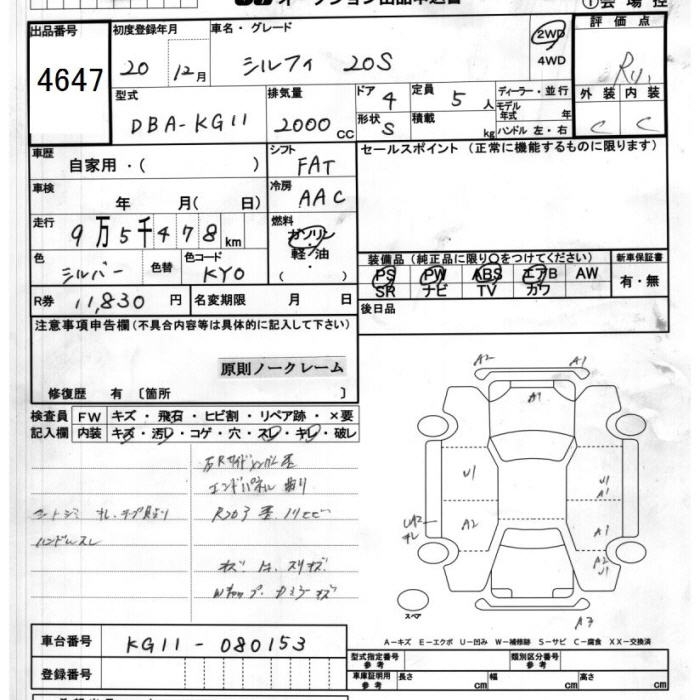 オークション出品申込書
①会場控
出品番号 初度登録年月 車名・グレード 評価点
4647 20 12月 シルフィ 20S 2WD 4WD R
型式 排気量 ドア 4 定員 5人 ディーラー・並行 外装 内装
DBA-KG11 2000cc 形状 S 積載 kg モデル年式 年 C C
ハンドル 左・右
車歴 自家用・( ) シフト FAT セールスポイント (正常に機能するものに限ります)
車検 年 月( 日) 冷房 AAC
走行 9万5千478km 燃料 ガソリン・軽油・
色 シルバー 色替 色コード KY0 装備品 (純正品に限り○をつけてください) 新車保証書
PS PW ABS エアB AW 有・無
SR ナビ TV カワ
R券 11,830円 名変期限 月 日 後日品
注意事項申告欄 (不具合内容等は具体的に記入して下さい)
原則ノークレーム
修復歴 有 〔箇所 〕
検査員記入欄 FW キズ・飛石・ヒビ割・リペア跡・×要
内装 キズ・汚レ・コゲ・穴・スレ・キレ・破レ
エンドパネル 曲り
ハンドルスレ
A2 A1
A1
U1 U1 A1
A2 A1
A2 U1
スペア
A3
A-キズ E-エクボ U-凹み W-補修跡 S-サビ C-腐食 XX-交換済
車台番号 KG11-080153
型式指定番号 参考 類別区分番号 参考
登録番号 車庫証明用 参考 長さ cm 幅 cm 高さ cm